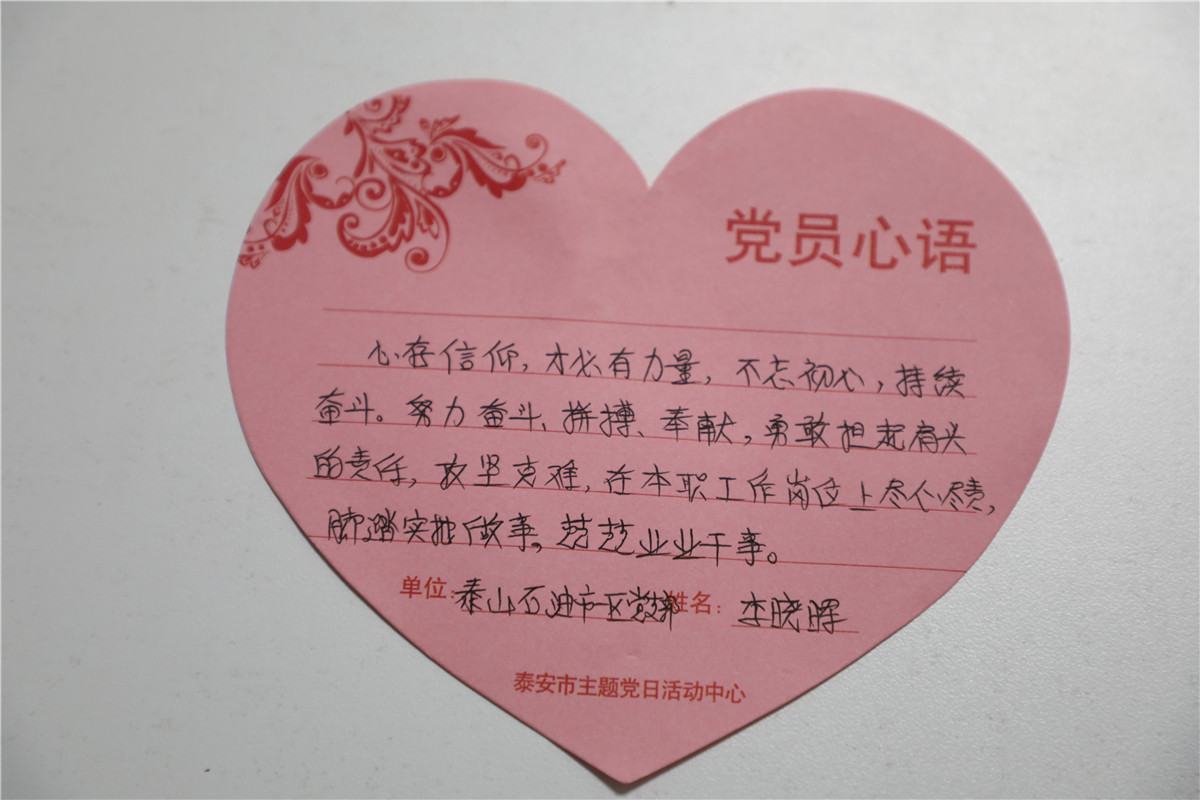 党员心语
心存信仰，才必有力量，不忘初心，持续
奋斗。努力奋斗、拼搏、奉献，勇敢担起肩头
的责任，攻坚克难，在本职工作岗位上尽心尽责，
脚踏实地做事，兢兢业业干事。
单位：泰山石油市区党支部 姓名：李晓晖
泰安市主题党日活动中心